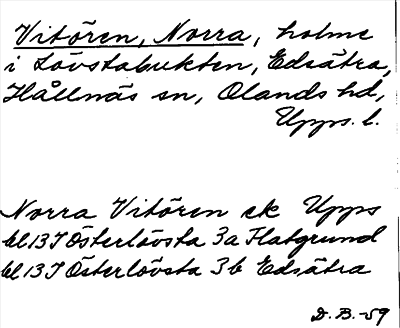 Vitören, Norra, holme
i Lövstabukten, Edsätra,
Hållnäs sn, Olands hd,
Upps. l.
Norra Vitören ek Upps
bl 13 I Österlövsta 3a Flatgrund
bl 13 I Österlövsta 3b Edsätra
D. B. -59